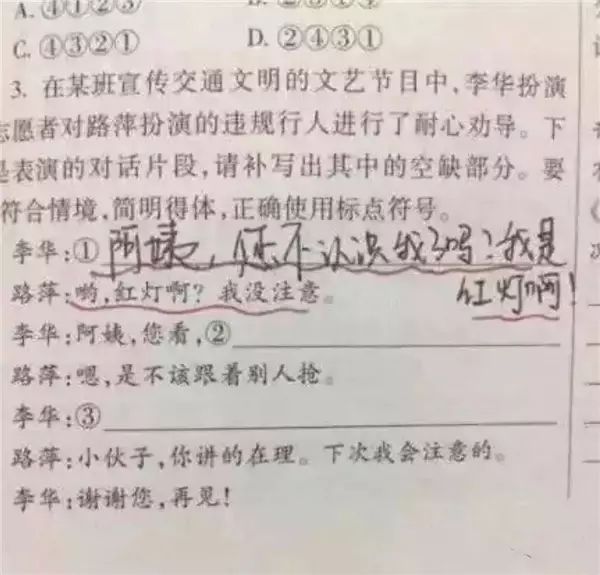 A. ④①②③
C. ④③②① D. ②④③①
3. 在某班宣传交通文明的文艺节目中,李华扮演
志愿者对路萍扮演的违规行人进行了耐心劝导。下
是表演的对话片段,请补写出其中的空缺部分。要
符合情境,简明得体,正确使用标点符号。
李华:①阿姨,你不认识我了吗?我是
路萍:哟,红灯啊?我没注意。 红灯啊!
李华:阿姨,您看,②
路萍:嗯,是不该跟着别人抢。
李华:③
路萍:小伙子,你讲的在理。下次我会注意的。
李华:谢谢您,再见!